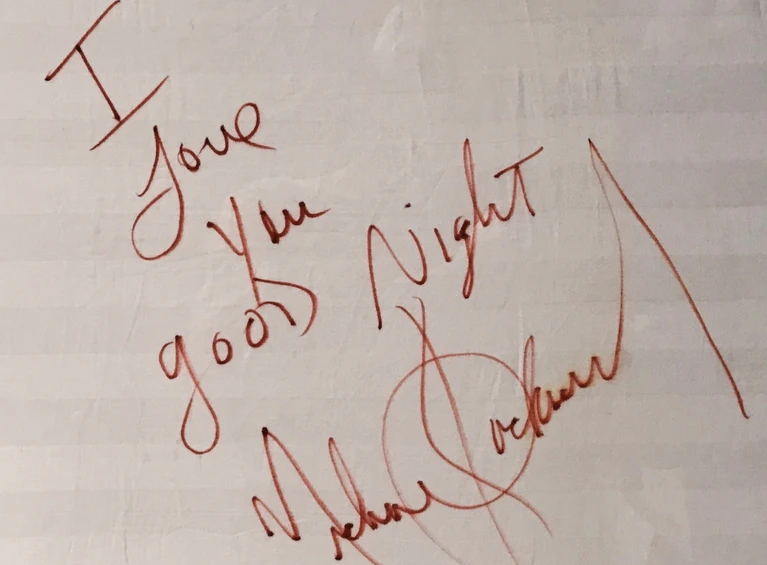 I
Love
You
good Night
Michael Jackson